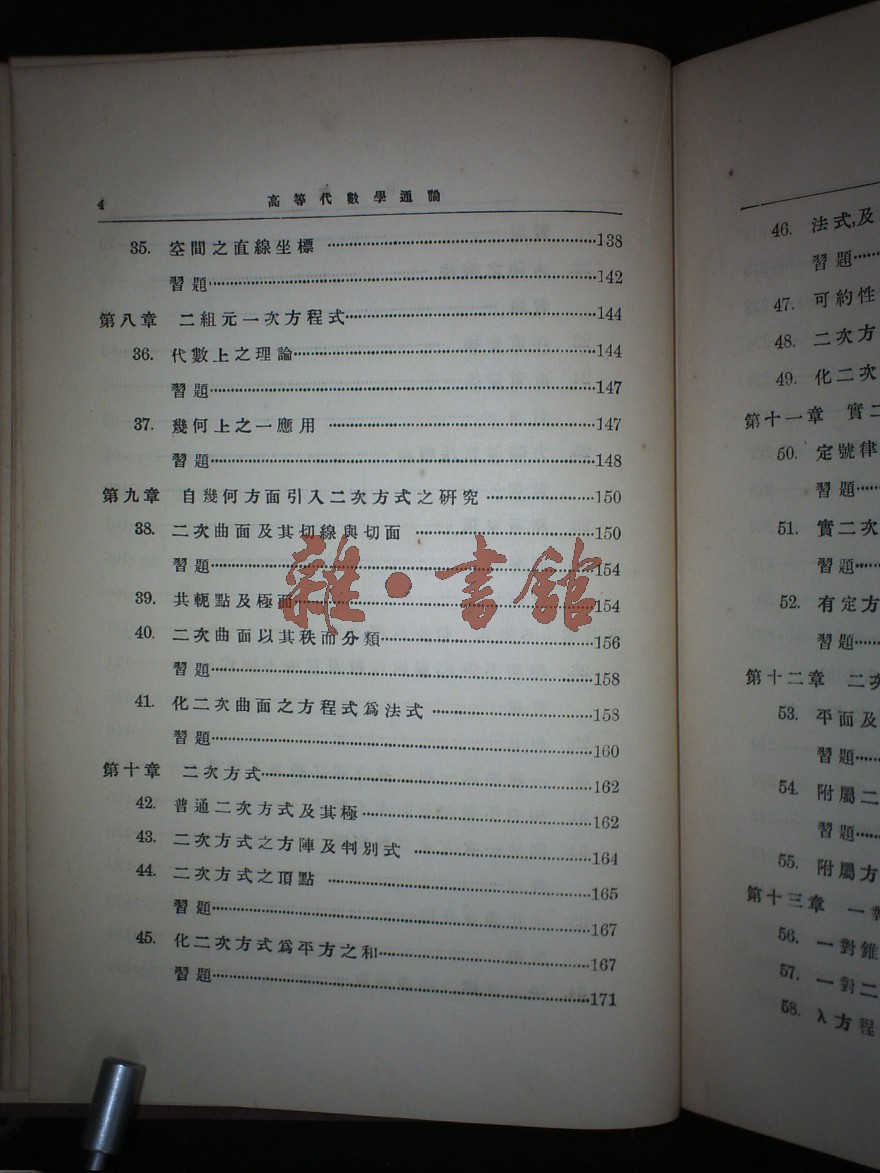 4 高等代數學通論
35. 空間之直線坐標 138
習題 142
第八章 二組元一次方程式 144
36. 代數上之理論 144
習題 147
37. 幾何上之一應用 147
習題 148
第九章 自幾何方面引入二次方式之研究 150
38. 二次曲面及其切線與切面 150
習題 154
39. 共軛點及極面 154
40. 二次曲面以其秩而分類 156
習題 158
41. 化二次曲面之方程式爲法式 158
習題 160
第十章 二次方式 162
42. 普通二次方式及其極 162
43. 二次方式之方陣及判別式 164
44. 二次方式之頂點 165
習題 167
45. 化二次方式爲平方之和 167
習題 171
雜·書館
46. 法式,及
習題
47. 可約性
48. 二次方
49. 化二次
第十一章 實二
50. 定號律
習題
51. 實二次
習題
52. 有定方
習題
第十二章 二次
53. 平面及
習題
54. 附屬二
習題
55. 附屬方
第十三章 一對
56. 一對錐
57. 一對二
58. λ方程